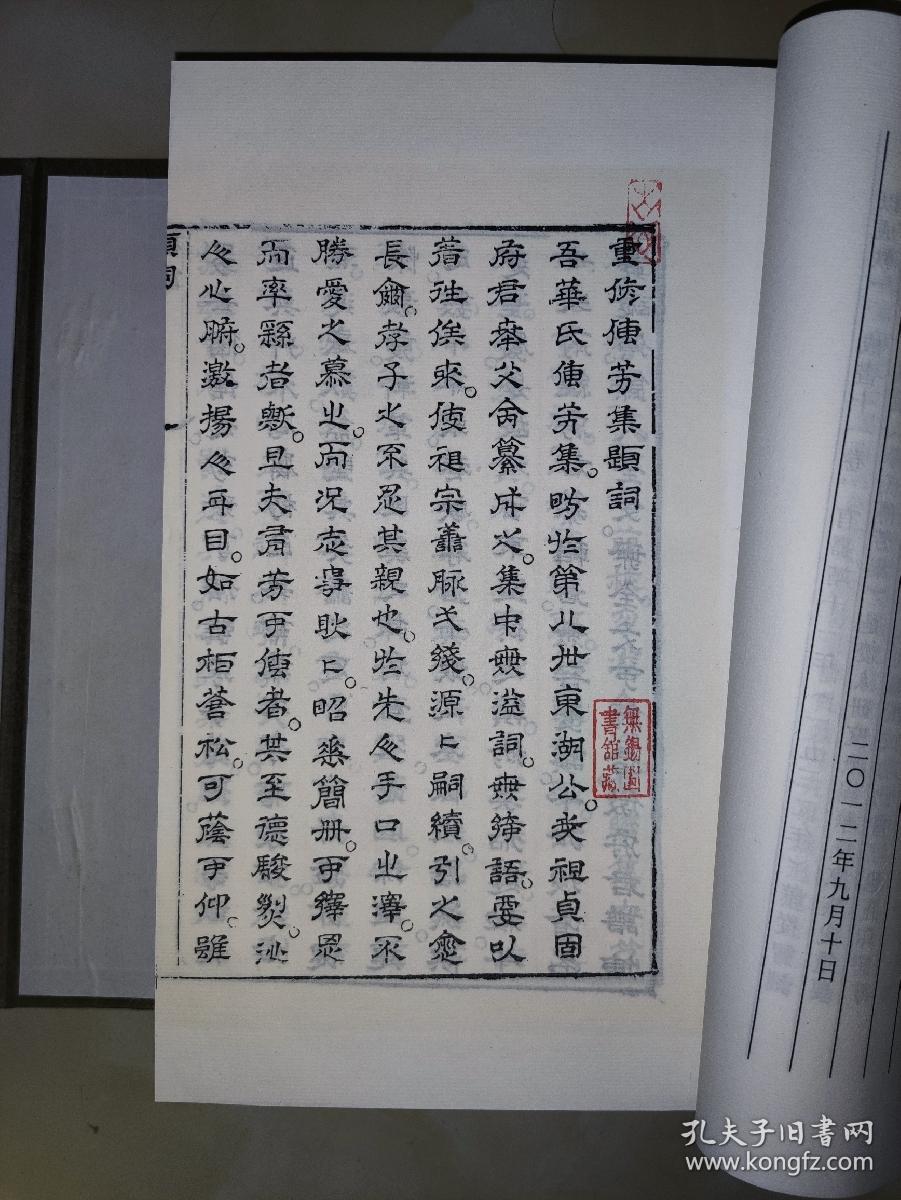 重修傳芳集題詞
吾華氏傳芳集昉於第八世東湖公我祖貞固
府君奉父命纂成之集中無溢詞無籍語要以
著往俟來使祖宗譜脉弋錢源二嗣續引之愈
長爾孝子之不忍其親也於先人手口之澤不
勝愛之慕之而況志事耿二昭垂簡册可繹思
而率繇者歟且夫有芳可傳者其至德駿烈沁
人心腑激揚人耳目如古柏蒼松可蔭可仰雖
題詞
一
無錫圖
書館藏
二〇一二年九月十日
孔夫子旧书网
www.kongfz.com